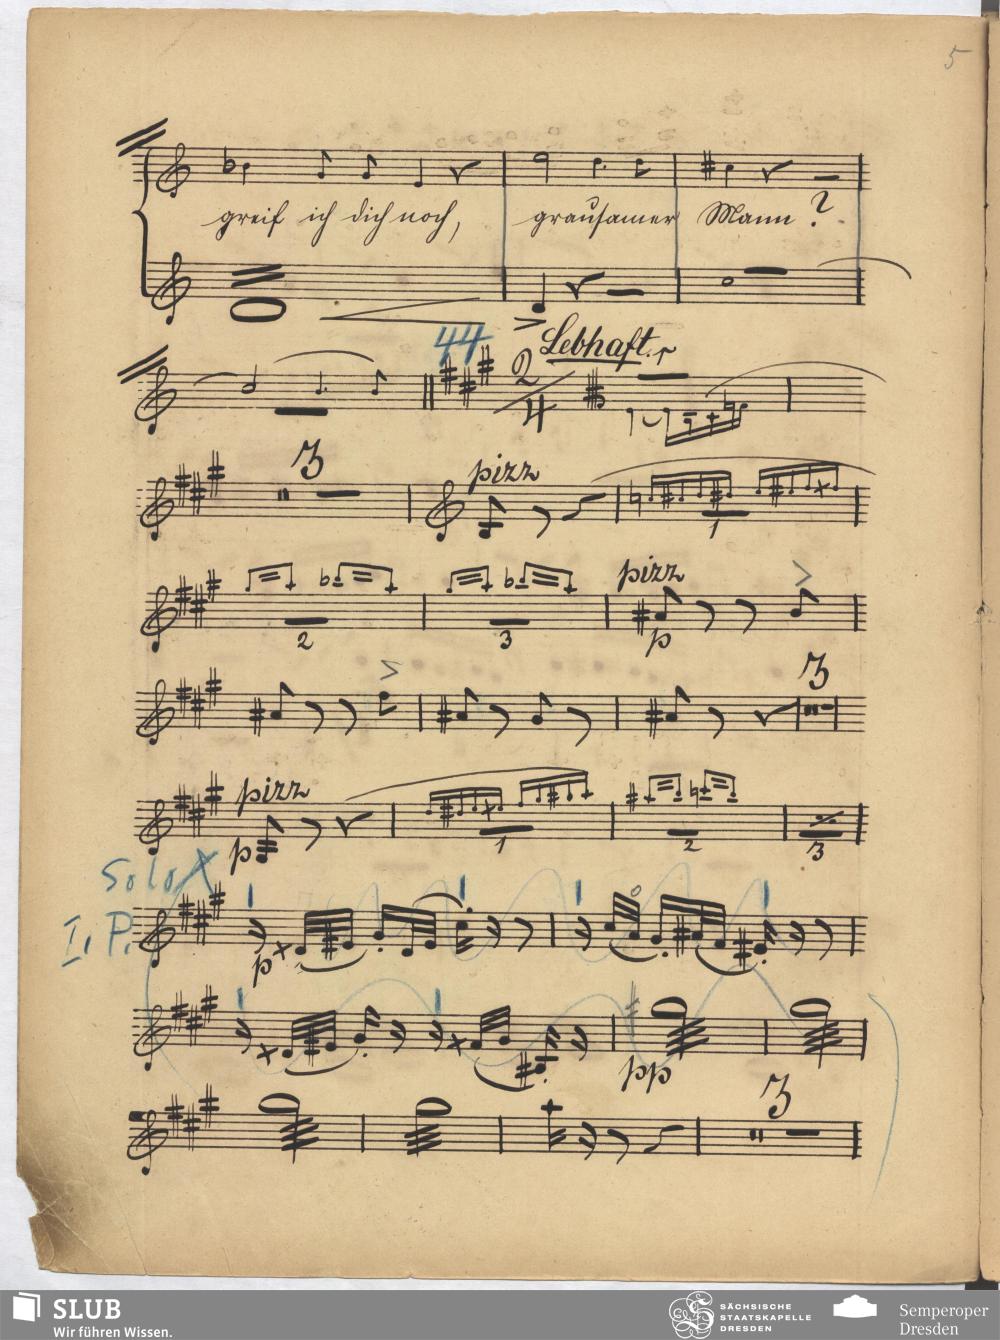 5
greif ich dich noch, grausamer Mann?
44 Lebhaft.
2
4
3 pizz
1
2 3 pizz
p
3
pizz
p 1 2 3
Solo X
I. P.
p
pp
3
SLUB
Wir führen Wissen.
SÄCHSISCHE
STAATSKAPELLE
DRESDEN
Semperoper
Dresden